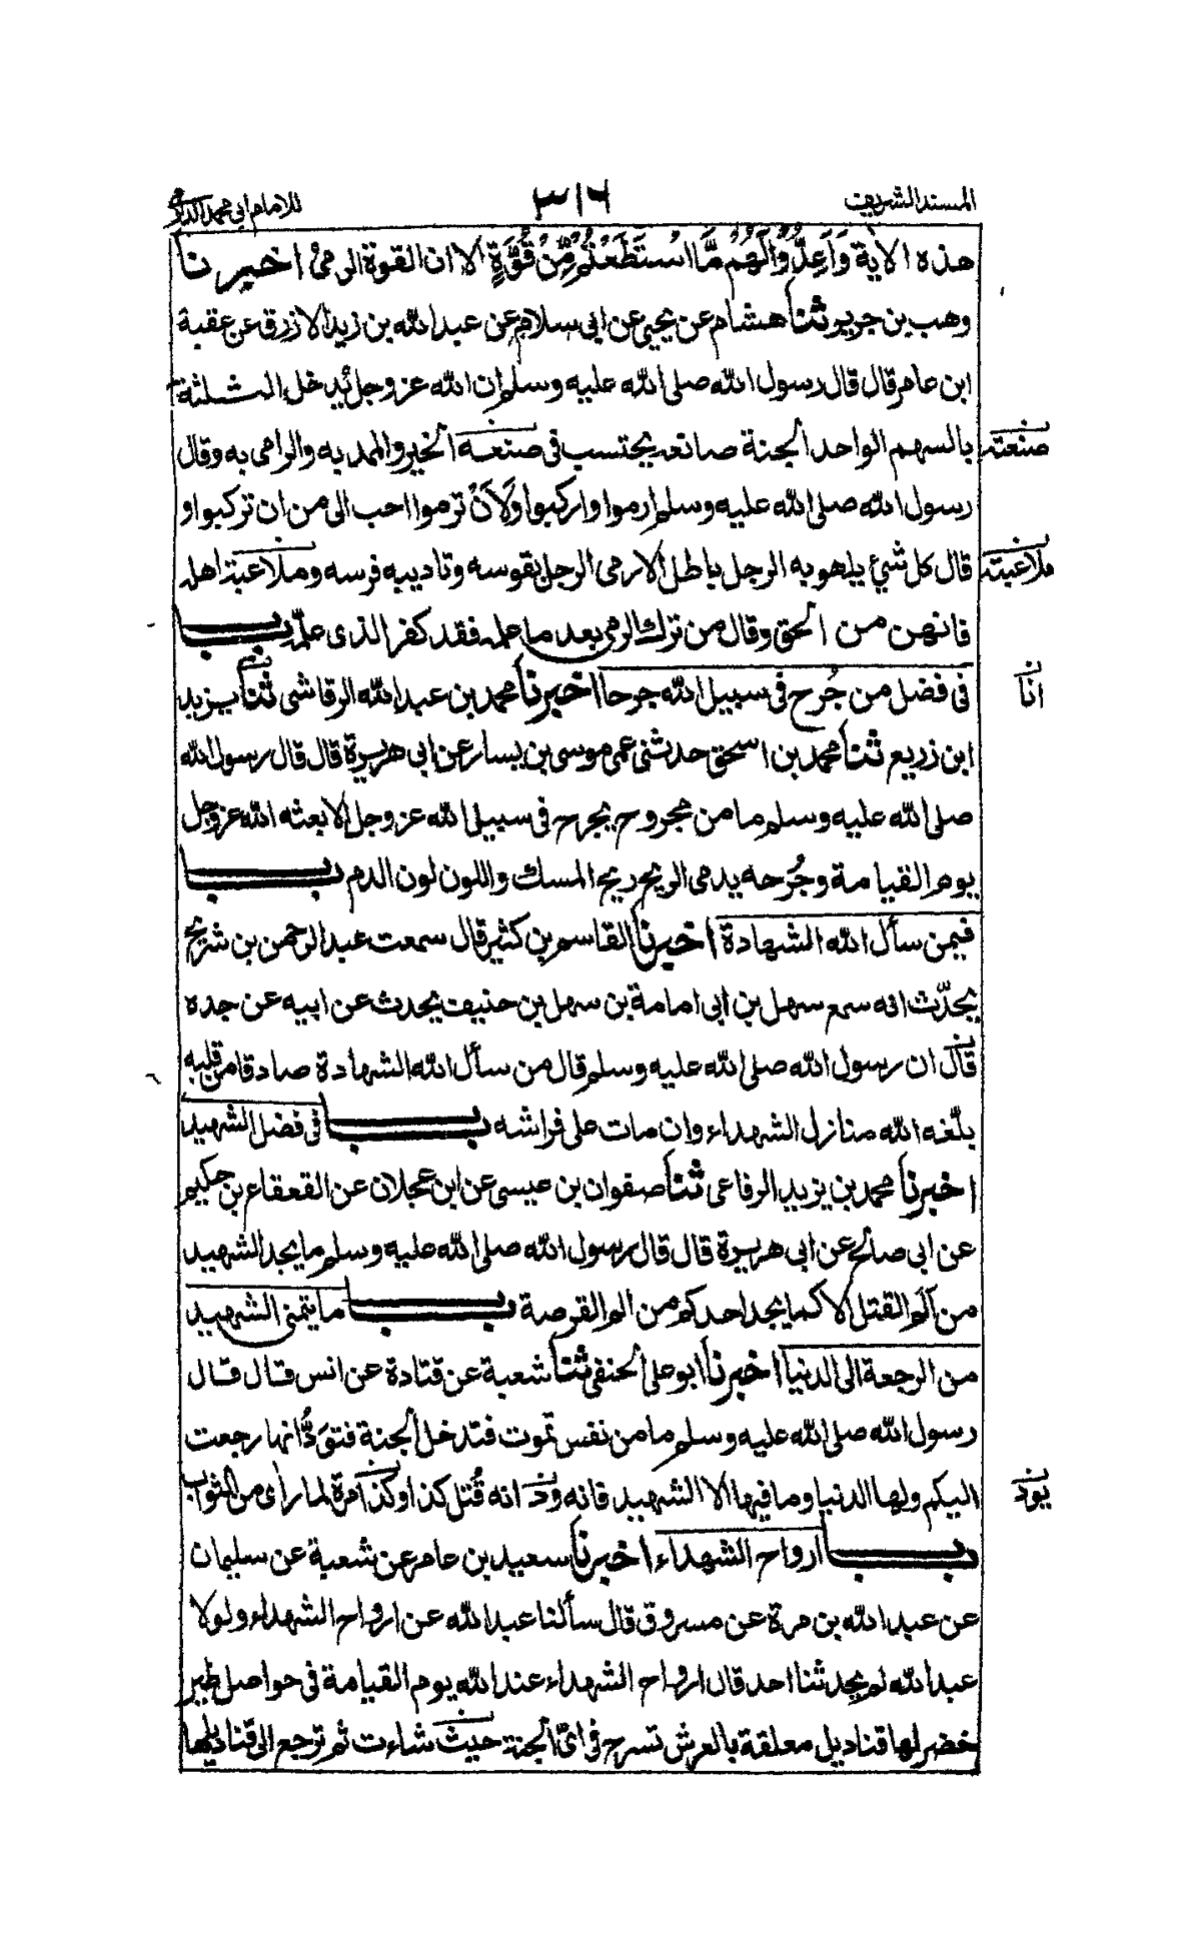 المسند الشريف ٣١٦ للامام ابي محمد الدارمي
هذه الاية وَاَعِدُّوْا لَهُمْ مَّا اسْتَطَعْتُمْ مِّنْ قُوَّةٍ الا ان القوة الرمي اخبرنا
وهب بن جرير ثنا هشام عن يحيى عن ابي سلام عن عبد الله بن زيد الازرق عن عقبة
ابن عامر قال قال رسول الله صلى الله عليه وسلم ان الله عز وجل يُدخل الثلثة
بالسهم الواحد الجنة صانعه يحتسب في صنعه الخير والممد به والرامي به وقال
صنعته
رسول الله صلى الله عليه وسلم ارموا واركبوا ولَاَنْ ترموا احب الى من ان تركبوا و
قال كل شئ يلهو به الرجل باطل الا رمى الرجل بقوسه وتاديبه فرسه وملاعبة اهله
ملاعبته
فانهن من الحق وقال من ترك الرمي بعد ما علمه فقد كفر الذى علّمه باب
في فضل من جُرح في سبيل الله جرحا اخبرنا محمد بن عبد الله الرقاشي ثنا يزيد
انا
ابن زريع ثنا محمد بن اسحق حدثنى عمى موسى بن يسار عن ابي هريرة قال قال رسول الله
صلى الله عليه وسلم ما من مجروح يجرح في سبيل الله عز وجل الا بعثه الله عز وجل
يوم القيامة وجُرحه يدمى الريح ريح المسك واللون لون الدم باب
فيمن سأل الله الشهادة اخبرنا القاسم بن كثير قال سمعت عبد الرحمن بن شريح
يحدّث انه سمع سهل بن ابي امامة بن سهل بن حنيف يحدث عن ابيه عن جده
قال ان رسول الله صلى الله عليه وسلم قال من سأل الله الشهادة صادقا من قلبه
بلّغه الله منازل الشهداء وان مات على فراشه باب في فضل الشهيد
اخبرنا محمد بن يزيد الرفاعي ثنا صفوان بن عيسى عن ابن عجلان عن القعقاع بن حكيم
عن ابي صالح عن ابي هريرة قال قال رسول الله صلى الله عليه وسلم ما يجد الشهيد
من اَلَم القتل الا كما يجد احدكم من الم القرصة باب ما يتمنى الشهيد
من الرجعة الى الدنيا اخبرنا ابو على الحنفي ثنا شعبة عن قتادة عن انس قال قال
رسول الله صلى الله عليه وسلم ما من نفس تموت فتدخل الجنة فتَوَدُّ انها رجعت
اليكم ولها الدنيا وما فيها الا الشهيد فانه ودّ انه قُتل كذا وكذا مرة لما رأى من الثواب
يودّ
باب ارواح الشهداء اخبرنا سعيد بن عامر عن شعبة عن سليمان
عن عبد الله بن مرة عن مسروق قال سألنا عبد الله عن ارواح الشهداء ولولا
عبد الله لم يحدثنا احد قال ارواح الشهداء عند الله يوم القيامة في حواصل طير
خضر لها قناديل معلقة بالعرش تسرح في اىّ الجنة حيث شاءت ثم ترجع الى قناديلها